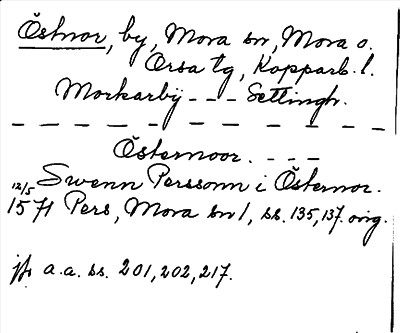 Östnor, by, Mora sn, Mora o.
Orsa tg, Kopparb. l.
Morkarby - - - Settingh.
Östernoor. - - -
12/5 Swenn Persson i Östernor.
1571 Pers, Mora sn 1, ss. 135, 137. orig.
jfr a.a. ss. 201, 202, 217.